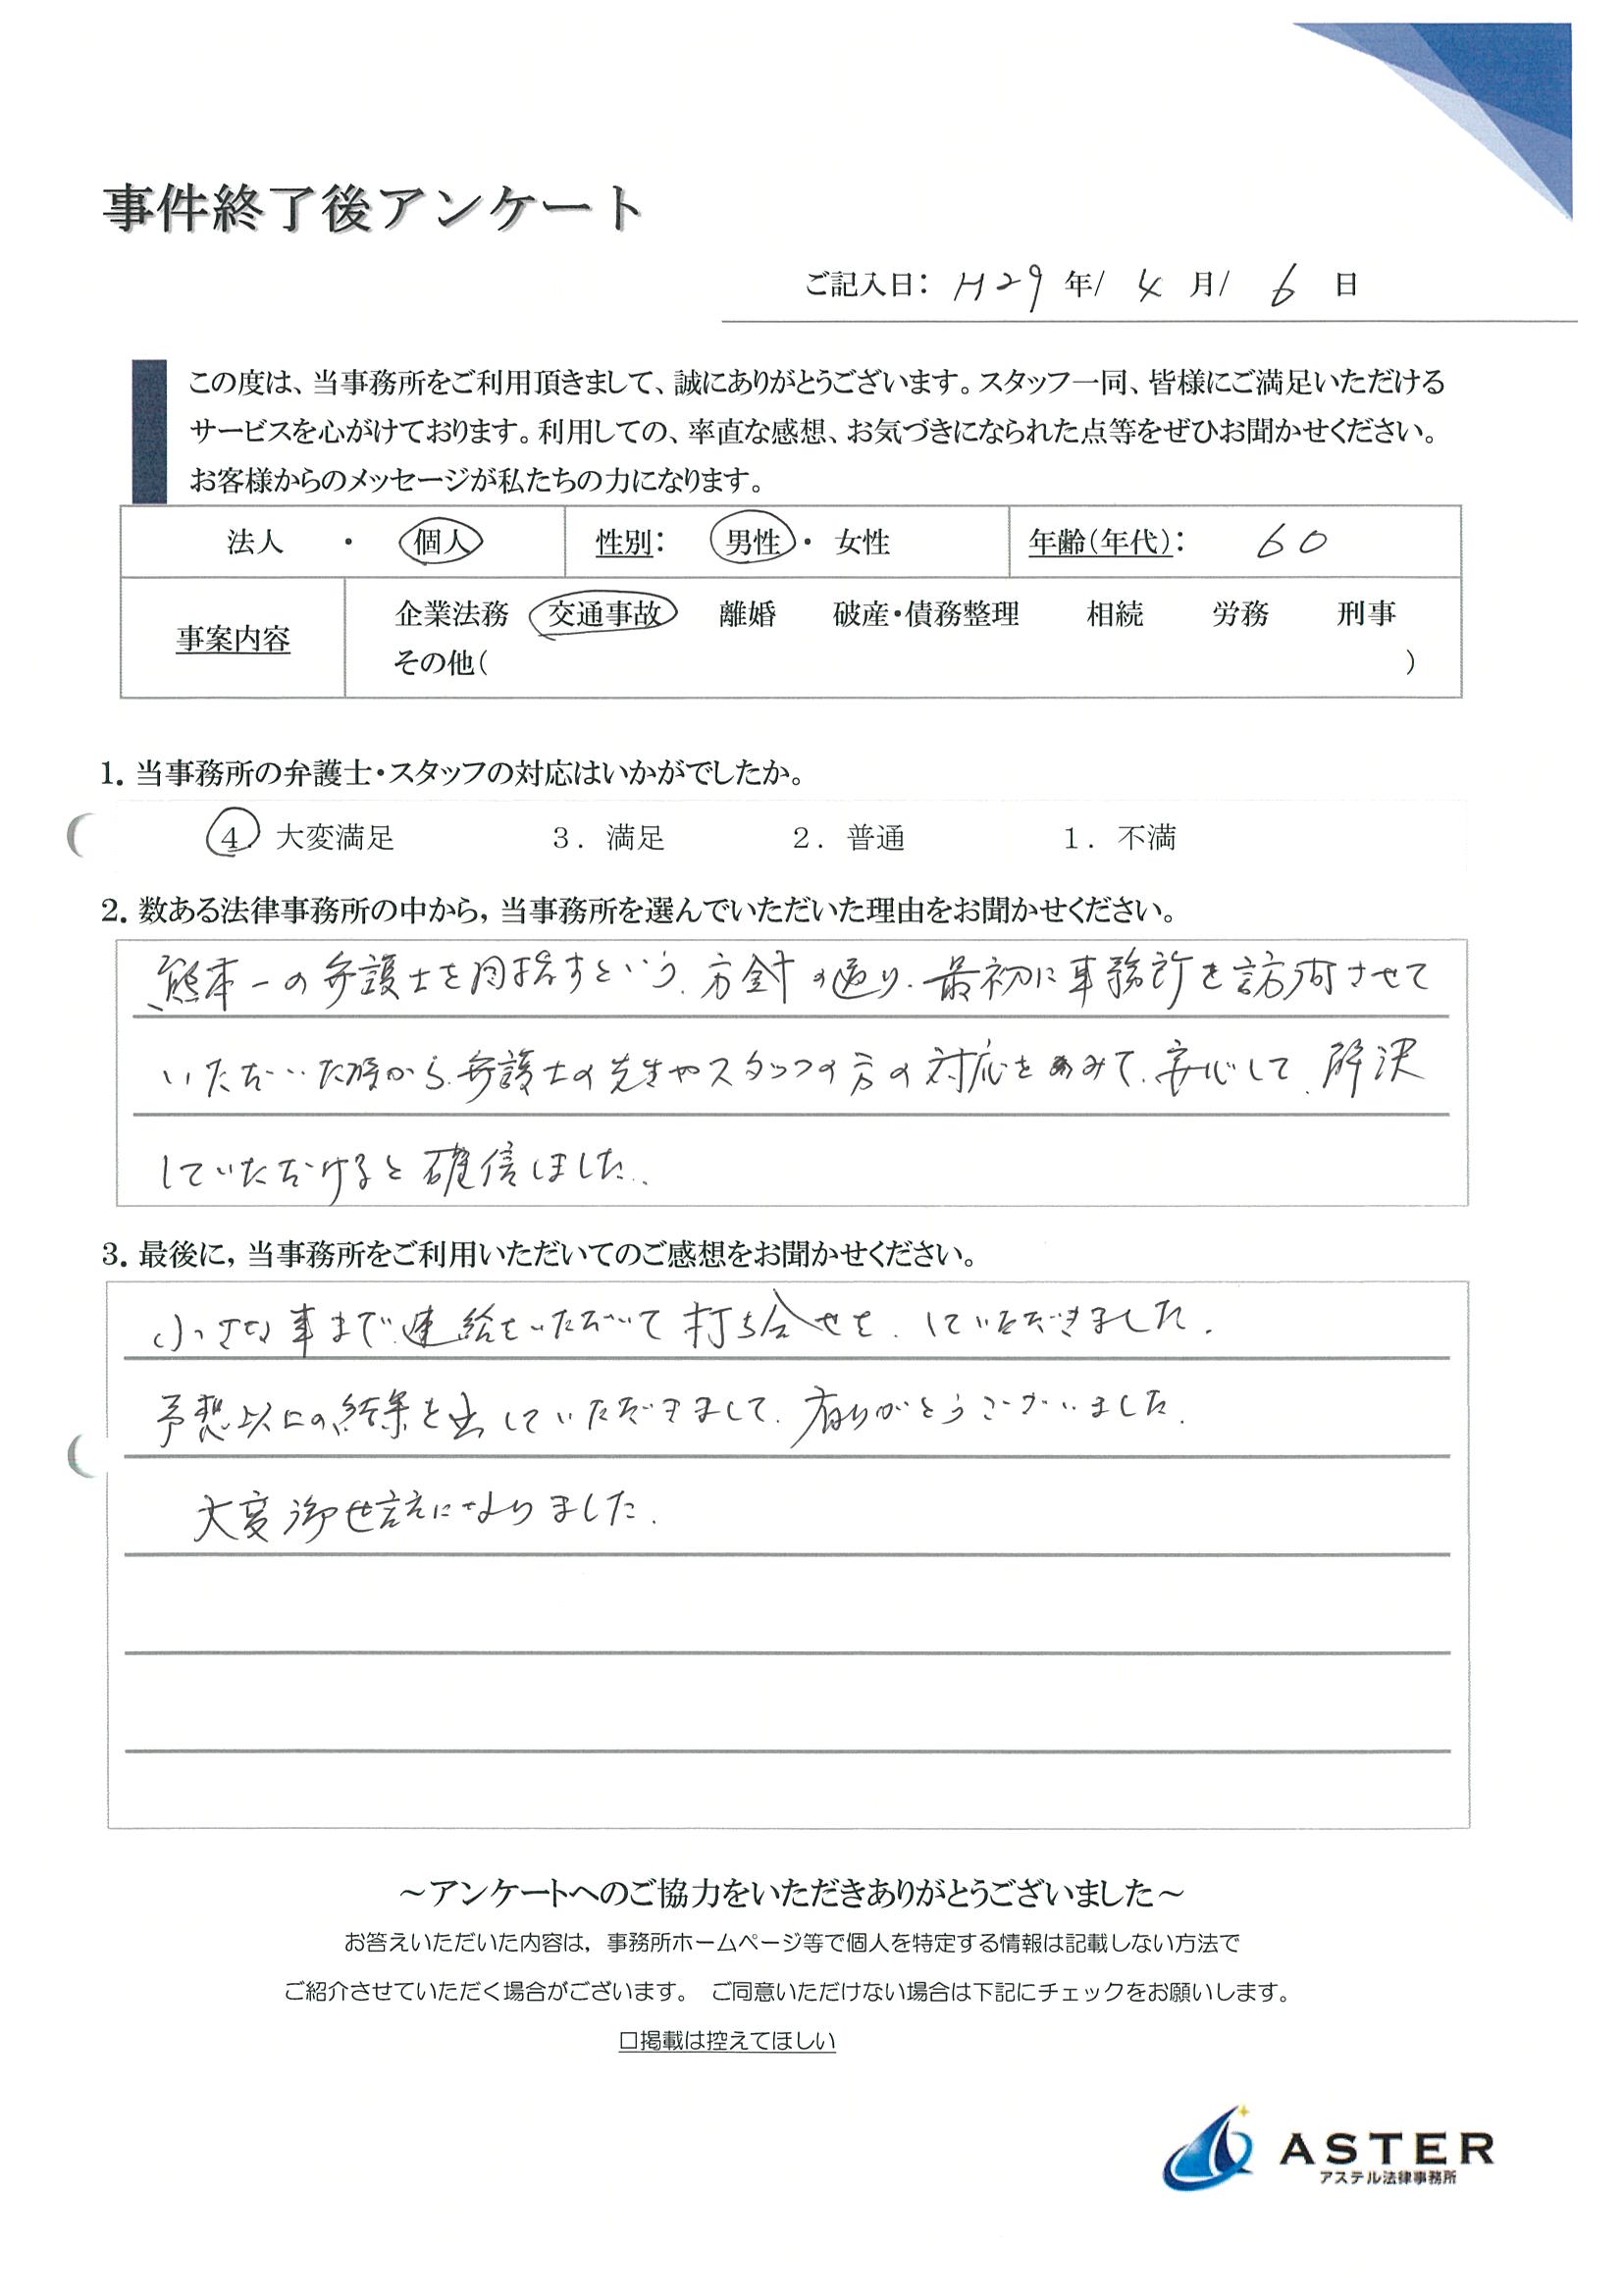 事件終了後アンケート
ご記入日： H29 年/ 4 月/ 6 日
この度は、当事務所をご利用頂きまして、誠にありがとうございます。スタッフ一同、皆様にご満足いただける
サービスを心がけております。利用しての、率直な感想、お気づきになられた点等をぜひお聞かせください。
お客様からのメッセージが私たちの力になります。
法人 ・ 個人 性別： 男性 ・ 女性 年齢（年代）： 60
事案内容 企業法務 交通事故 離婚 破産・債務整理 相続 労務 刑事
その他（ ）
1. 当事務所の弁護士・スタッフの対応はいかがでしたか。
4. 大変満足 3. 満足 2. 普通 1. 不満
2. 数ある法律事務所の中から, 当事務所を選んでいただいた理由をお聞かせください。
熊本一の弁護士を目指すという、方針の通り、最初に事務所を訪問させて
いただいた時から、弁護士の先生やスタッフの方の対応をみて、安心して、解決
していただけると確信しました。
3. 最後に, 当事務所をご利用いただいてのご感想をお聞かせください。
小さな事まで、連絡をいただいて打ち合せを、していただきました。
予想以上の結果を出していただきまして、有りがとうございました。
大変御世話になりました。
～アンケートへのご協力をいただきありがとうございました～
お答えいただいた内容は, 事務所ホームページ等で個人を特定する情報は記載しない方法で
ご紹介させていただく場合がございます。 ご同意いただけない場合は下記にチェックをお願いします。
□掲載は控えてほしい
ASTER
アステル法律事務所